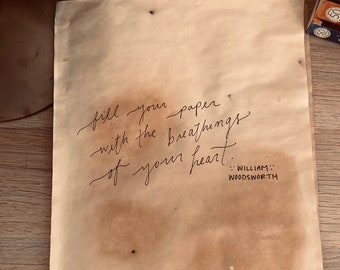 fill your paper
with the breathings
of your heart.
WILLIAM
WOODSWORTH